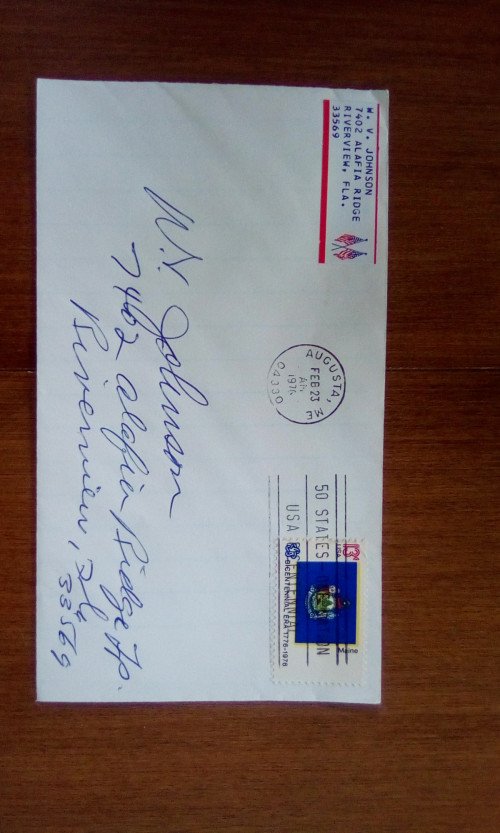 W. V. JOHNSON
7402 ALAFIA RIDGE
RIVERVIEW, FLA.
33569
AUGUSTA, ME
FEB 23
AM
1976
04330
50 STATES
USA BICENTENNIAL
13c
USA
BICENTENNIAL ERA 1776-1976
Maine
W.V. Johnson
7402 Alafia Ridge
Riverview, Fla
33569